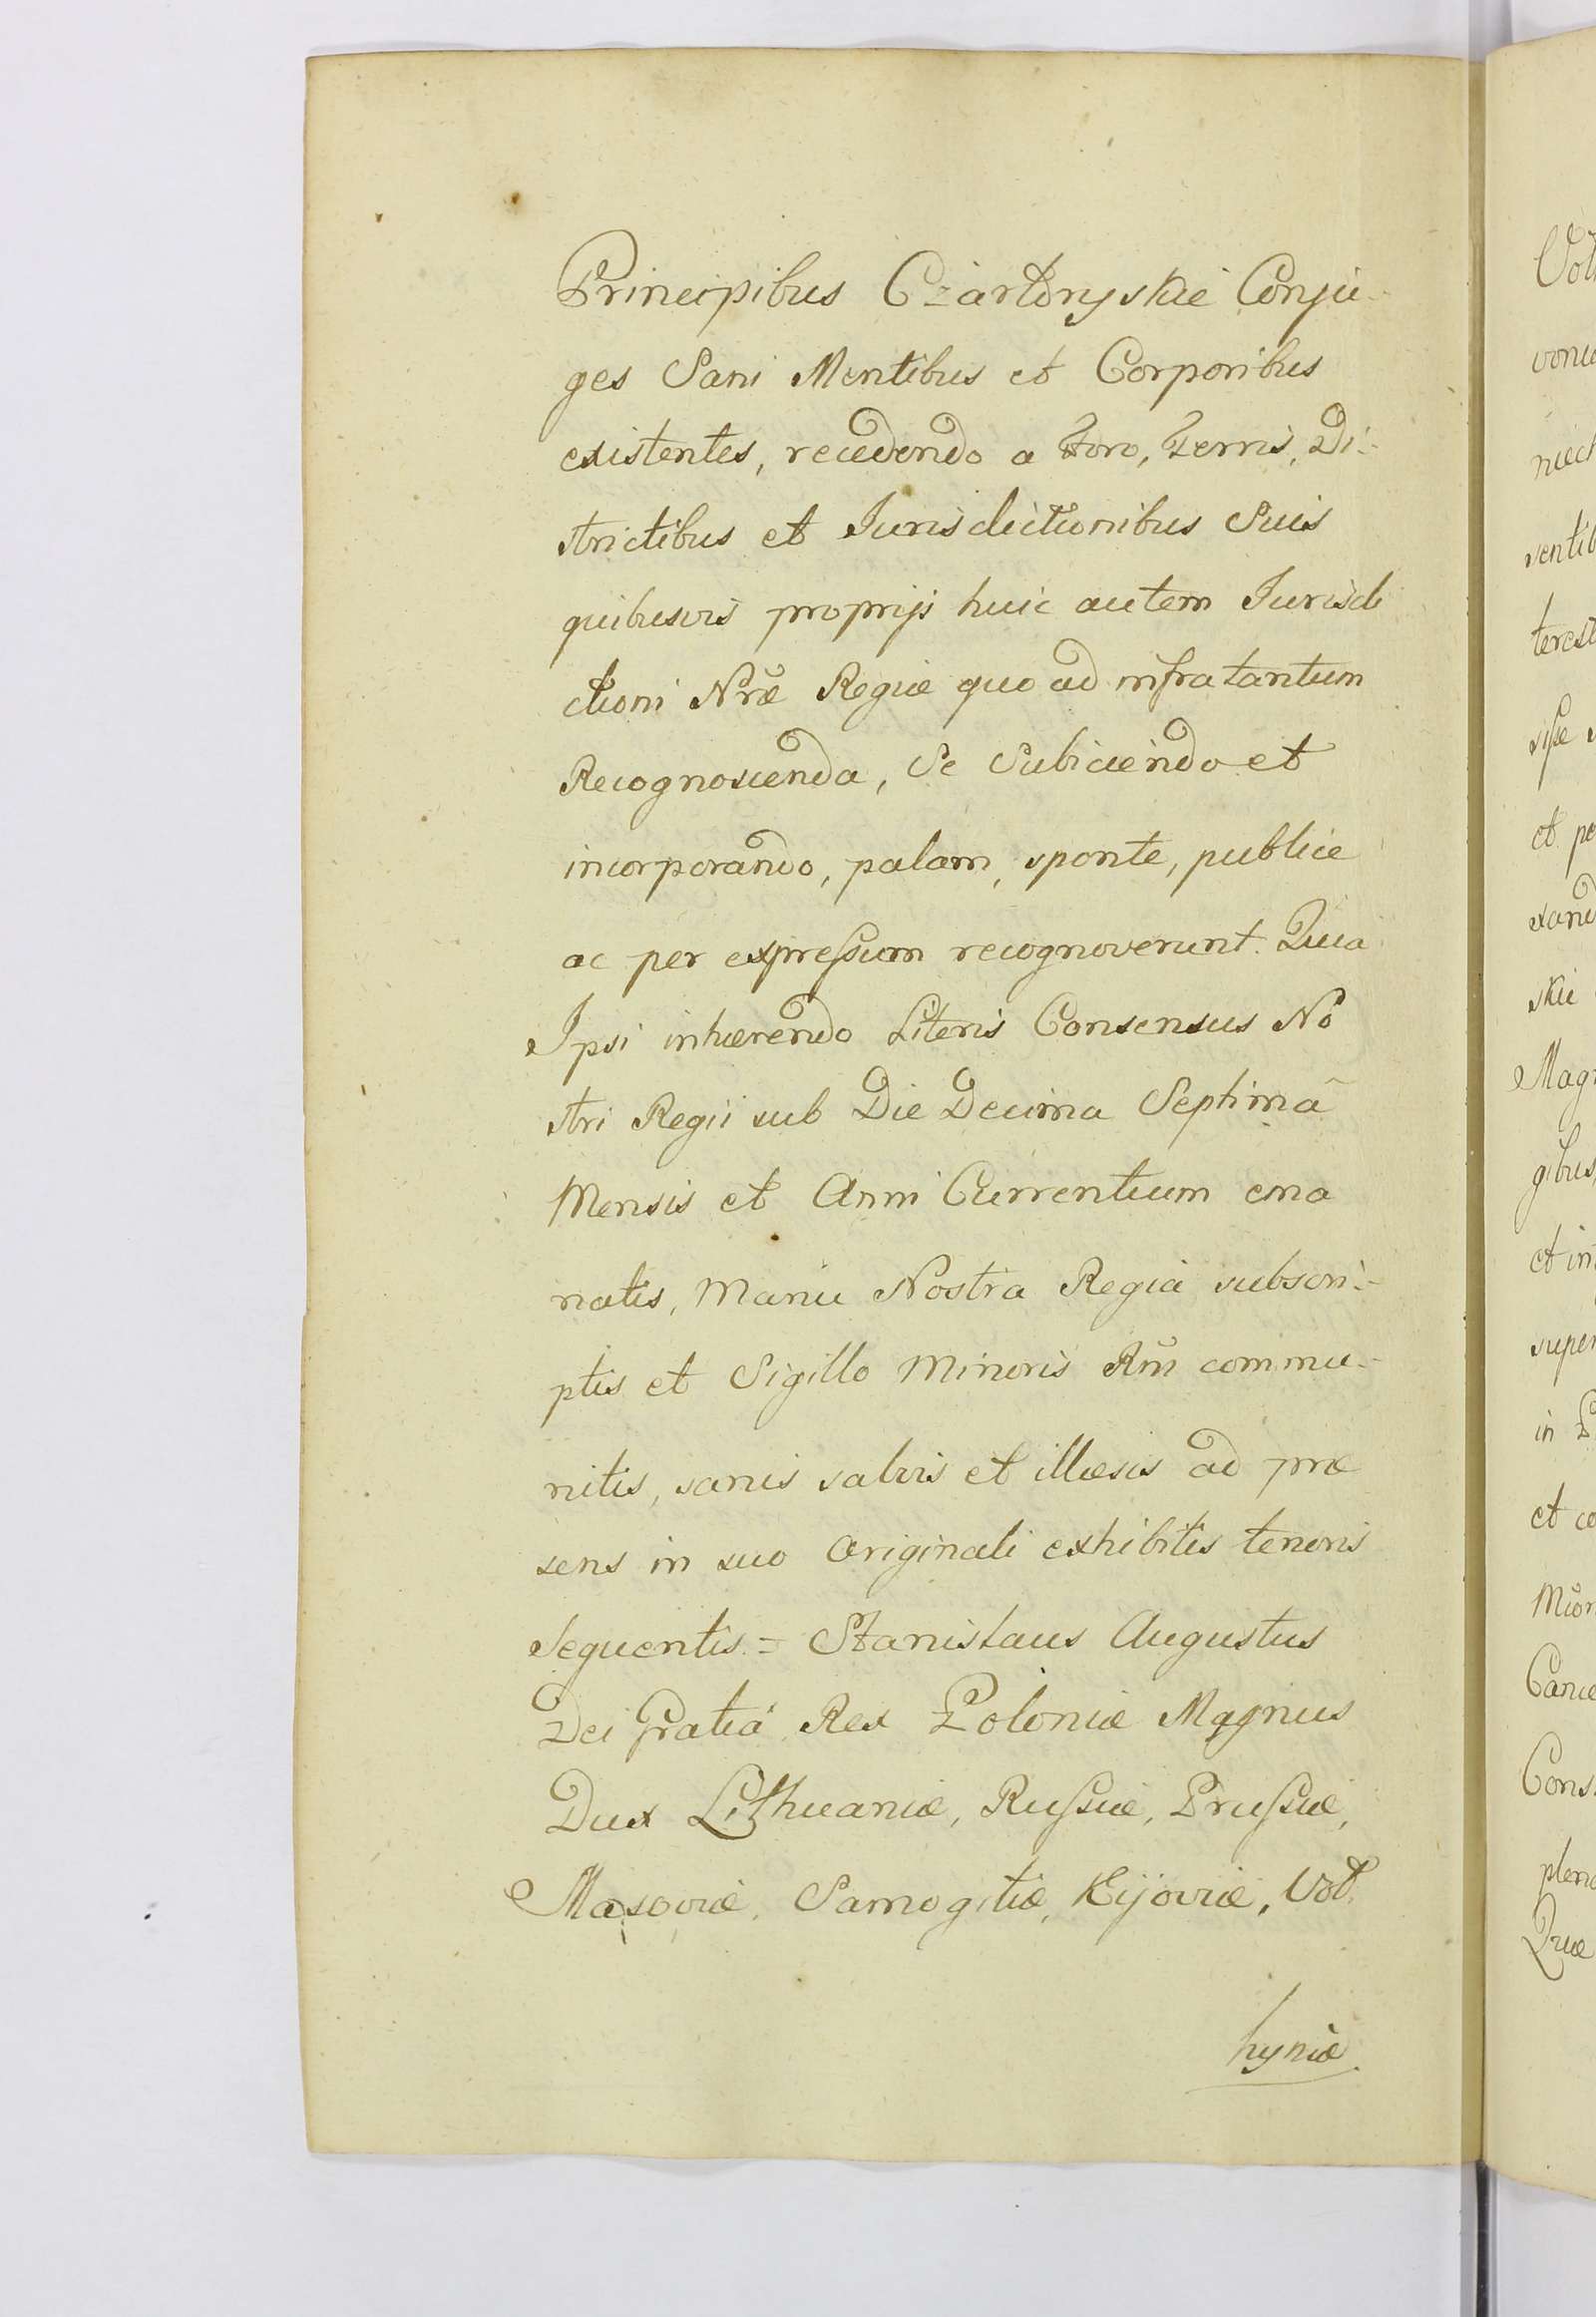 Principibus Czartoryskie Conju-
ges Sani Mentibus et Corporibus
existentes, recedendo a Foro, Terris, Di-
strictibus et Jurisdictionibus Suis
quibusvis proprijs huic autem Jurisdi
ctioni Nræ Regiæ quo ad infra tantum
Recognoscenda, Se Subiciendo et
incorporando, palam, sponte, publice
ac per expreſsum recognoverunt. Quia
Ipsi inhærendo Literis Consensus No
stri Regii sub Die Decima Septimā
Mensis et Anni Currentium ema
natis, Manu Nostra Regia subscri-
ptis et Sigillo Minoris Rni commu-
nitis, sanis salvis et illæsis ad præ
sens in suo Originali exhibitis tenoris
Sequentis = Stanislaus Augustus
Dei Gratiâ Rex Poloniæ Magnus
Dux Lithuaniæ, Ruſsiæ, Pruſsiæ,
Masoviæ, Samogitiæ, Kijoviæ, Vol
hyniæ
Vol
voniæ
ventib
et pe
skie
Mag
gibus,
et in
super
in
et co
Cance
Cons
plen
Quæ